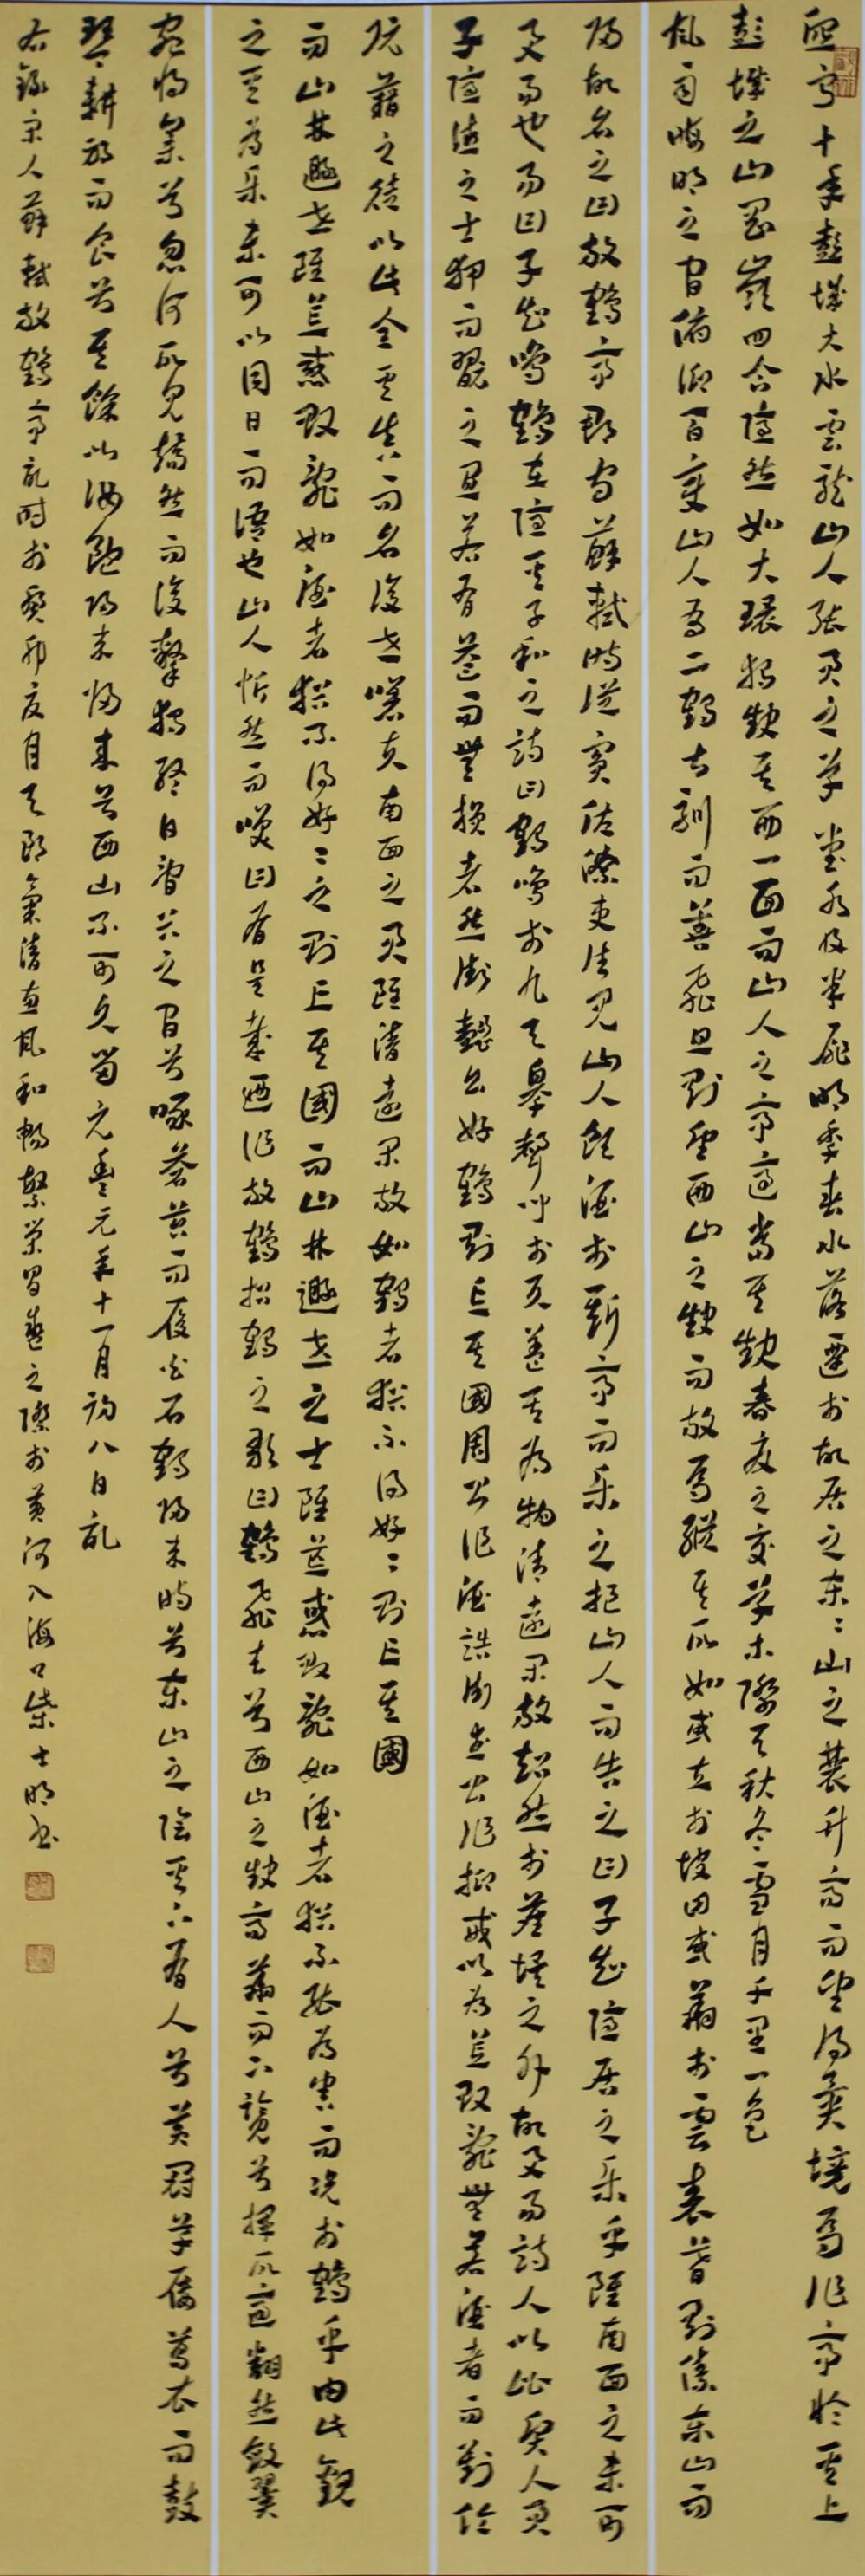 熙寧十年彭城大水雲龍山人張君之草堂水及半扉明季春水落遷於故居之東〻山之麓升高而望得異境焉作亭於其上
彭城之山岡嶺四合隱然如大環獨缺其西一面而山人之亭適當其缺春夏之交草木際天秋冬雪月千里一色
風雨晦明之間俯仰百變山人有二鶴甚馴而善飛旦則望西山之缺而放焉縱其所如或立於坡田或翔於雲表暮則傃東山而
歸故名之曰放鶴亭郡守蘇軾時從賓佐僚吏往見山人飲酒於斯亭而樂之挹山人而告之曰子知隱居之樂乎雖南面之未可
與易也易曰子知鳴鶴在隱其子和之詩曰鶴鳴於九天皋聲聞於天蓋其為物清遠閑放超然於塵埃之外故與易詩人以比賢人君
子隱德之士狎而翫之宜若有益而無損者然衛懿公好鶴則亡其國周公作酒誥衛武公作抑戒以為荒敗亂無若酒者而劉伶
阮籍之徒以此全其真而名後世嗟夫南面之君雖清遠閑放如鶴者猶不得好〻則亡其國
而山林遯世雖荒惑敗亂如酒者猶不得好〻之則亡其國而山林遯世之士雖荒惑敗亂如酒者猶不能為害而況於鶴乎由此觀
之其為樂未可以同日而語也山人忻然而笑曰有是哉迺作放鶴招鶴之歌曰鶴飛去兮西山之缺高翔而下覽兮擇所適翻然斂翼
宛將集兮忽何所見矯然而復擊獨終日澗谷之間兮啄蒼苔而履白石鶴歸來時兮東山之陰其下有人兮黃冠草屨葛衣而鼓
琴耕躬而食兮其餘以汝飽歸來歸來兮西山不可久留元豐元年十一月初八日記
右錄宋人蘇軾放鶴亭記時於癸卯夏月天朗氣清惠風和暢繁榮昌盛之際於黃河入海口柴士明書